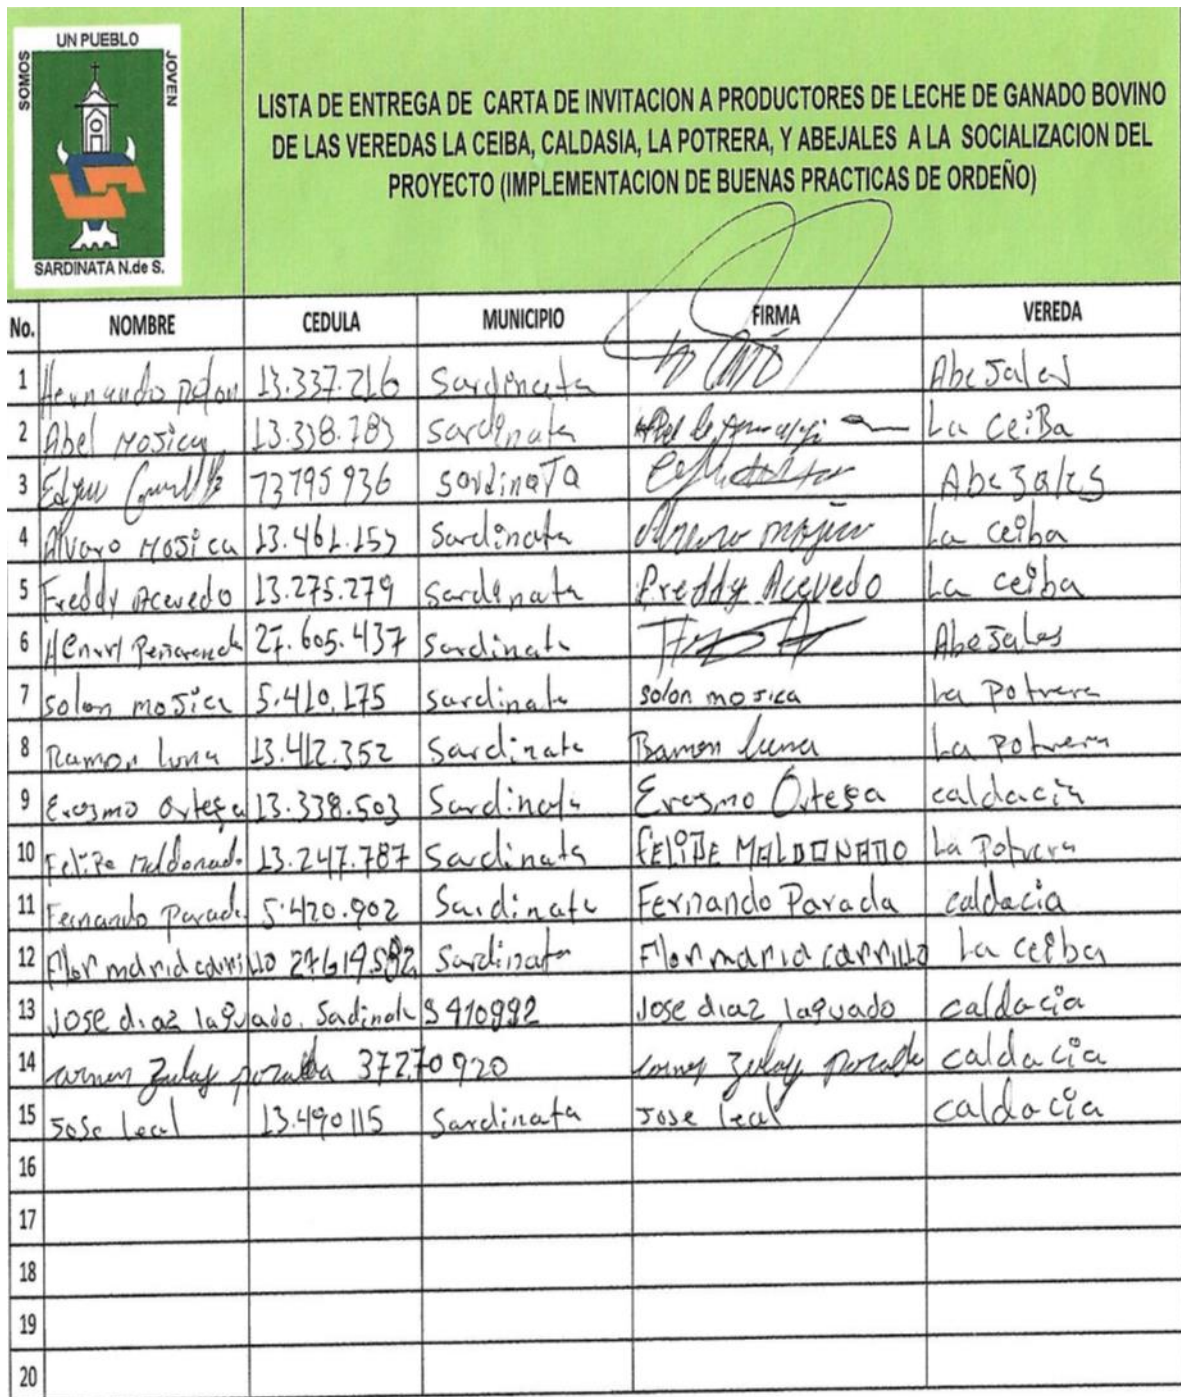 UN PUEBLO
SOMOS
JOVEN
SARDINATA N.de S.
LISTA DE ENTREGA DE CARTA DE INVITACION A PRODUCTORES DE LECHE DE GANADO BOVINO
DE LAS VEREDAS LA CEIBA, CALDASIA, LA POTRERA, Y ABEJALES A LA SOCIALIZACION DEL
PROYECTO (IMPLEMENTACION DE BUENAS PRACTICAS DE ORDEÑO)
No. NOMBRE CEDULA MUNICIPIO FIRMA VEREDA
1 Hernando 13.337.216 Sardinata Abejales
2 Abel Mojica 13.338.783 Sardinata La CeiBa
3 73795936 SardinaTa Abejales
4 Alvaro Mojica 13.461.157 Sardinata Alvaro mojica La ceiba
5 Freddy Acevedo 13.275.279 Sardinata Freddy Acevedo La ceiba
6 Henrry Peñaranda 27.605.437 Sardinata Abejales
7 solon mojica 5.410.175 Sardinata solon mojica La potrera
8 Ramon luna 13.412.352 Sardinata Ramon luna La potrera
9 Erasmo Ortega 13.338.503 Sardinata Erasmo Ortega caldacia
10 Felipe Maldonado 13.247.787 Sardinata FELIPE MALDONADO La Potrera
11 Fernando Parada 5.420.902 Sardinata Fernando Parada caldacia
12 Flor maria carrillo 27619.582 Sardinata Flor maria carrillo La ceiba
13 Jose diaz laguado. Sadinata 5410992 Jose diaz laguado caldacia
14 carmen Zulay parada 37270920 carmen Zulay parada caldacia
15 Jose leal 13.490115 Sardinata Jose leal caldacia
16
17
18
19
20